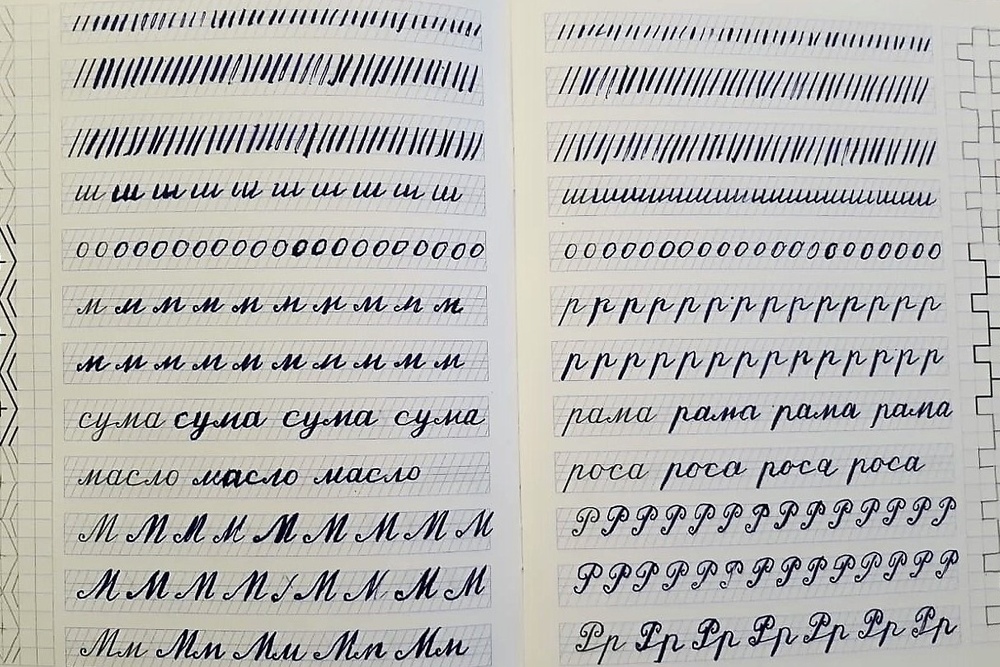 ш ш ш ш ш ш ш ш ш ш
о о о о о о о о о о о о о о о о о о о о о о
м м м м м м м м м м
м м м м м м м м м м
сума сума сума сума
масло масло масло
М М М М М М М М М
М М М М М М М М
Мм Мм Мм Мм Мм
шшшшшшшшшшшшшшш
о о о о о о о о о о о о о о о о о о о о
р р р р р р р р р р р р р р
р р р р р р р р р р р р р р
рама рама рама рама
роса роса роса роса
Р Р Р Р Р Р Р Р Р Р Р Р Р Р
Р Р Р Р Р Р Р Р Р Р Р Р Р Р
Рр Рр Рр Рр Рр Рр Рр